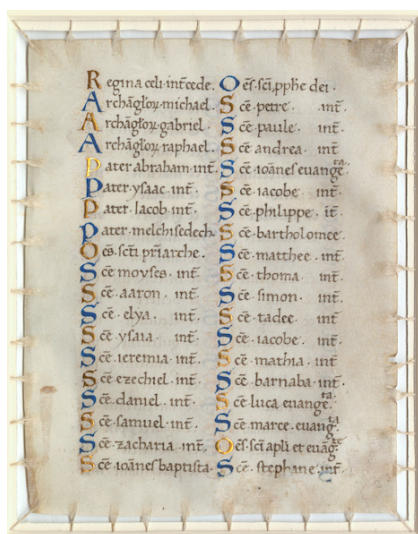 Regina celi int̄cede.
Archãgłoꝝ michael.
Archãgłoꝝ gabriel.
Archãgłoꝝ raphael.
Pater abraham int̄.
Pater ysaac int̄.
Pater Iacob int̄.
Pater melchisedech.
Oēs sc̄ti pr̄iarche.
Sc̄e moyses int̄
Sc̄e aaron int̄.
Sc̄e elya. int̄.
Sc̄e ysaia. int̄.
Sc̄e ieremia int̄.
Sc̄e ezechiel int̄.
Sc̄e daniel int̄.
Sc̄e samuel int̄.
Sc̄e zacharia int̄.
Sc̄e ioānes baptista.
Oēs sc̄i pphe dei.
Sc̄e petre. int̄.
Sc̄e paule. int̄.
Sc̄e andrea int̄.
Sc̄e ioānes euangeᵗᵃ.
Sc̄e iacobe int̄.
Sc̄e philippe it̄.
Sc̄e bartholomee
Sc̄e matthee int̄.
Sc̄e thoma int̄.
Sc̄e simon. int̄.
Sc̄e tadee. int̄.
Sc̄e iacobe. int̄.
Sc̄e mathia int̄.
Sc̄e barnaba int̄.
Sc̄e luca euangeᵗᵃ.
Sc̄e marce euangᵗᵃ
Oēs sc̄i apl̄i et euāgᵗᵉ
Sc̄e stephane int̄.